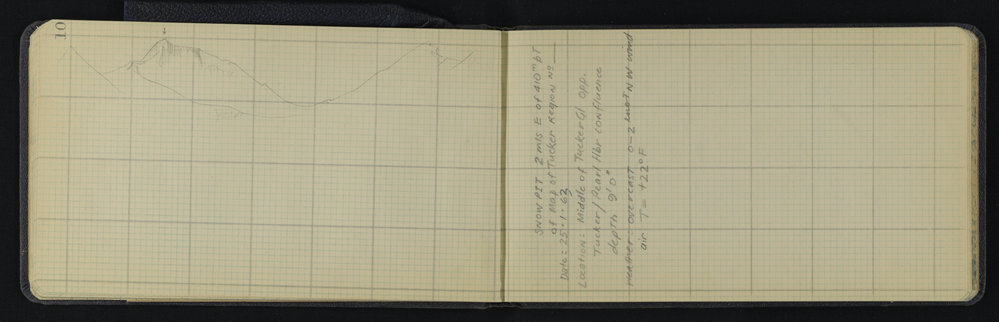 10
SNOW PIT 2 mls E of 410m pt
of Map of Tucker Region No
Date: 25.1.63
Location: Middle of Tucker Gl opp.
Tucker/Pearl Hbr confluence
depth 9'0"
Weather: overcast 0-2 knot NW wind
air T = +22°F